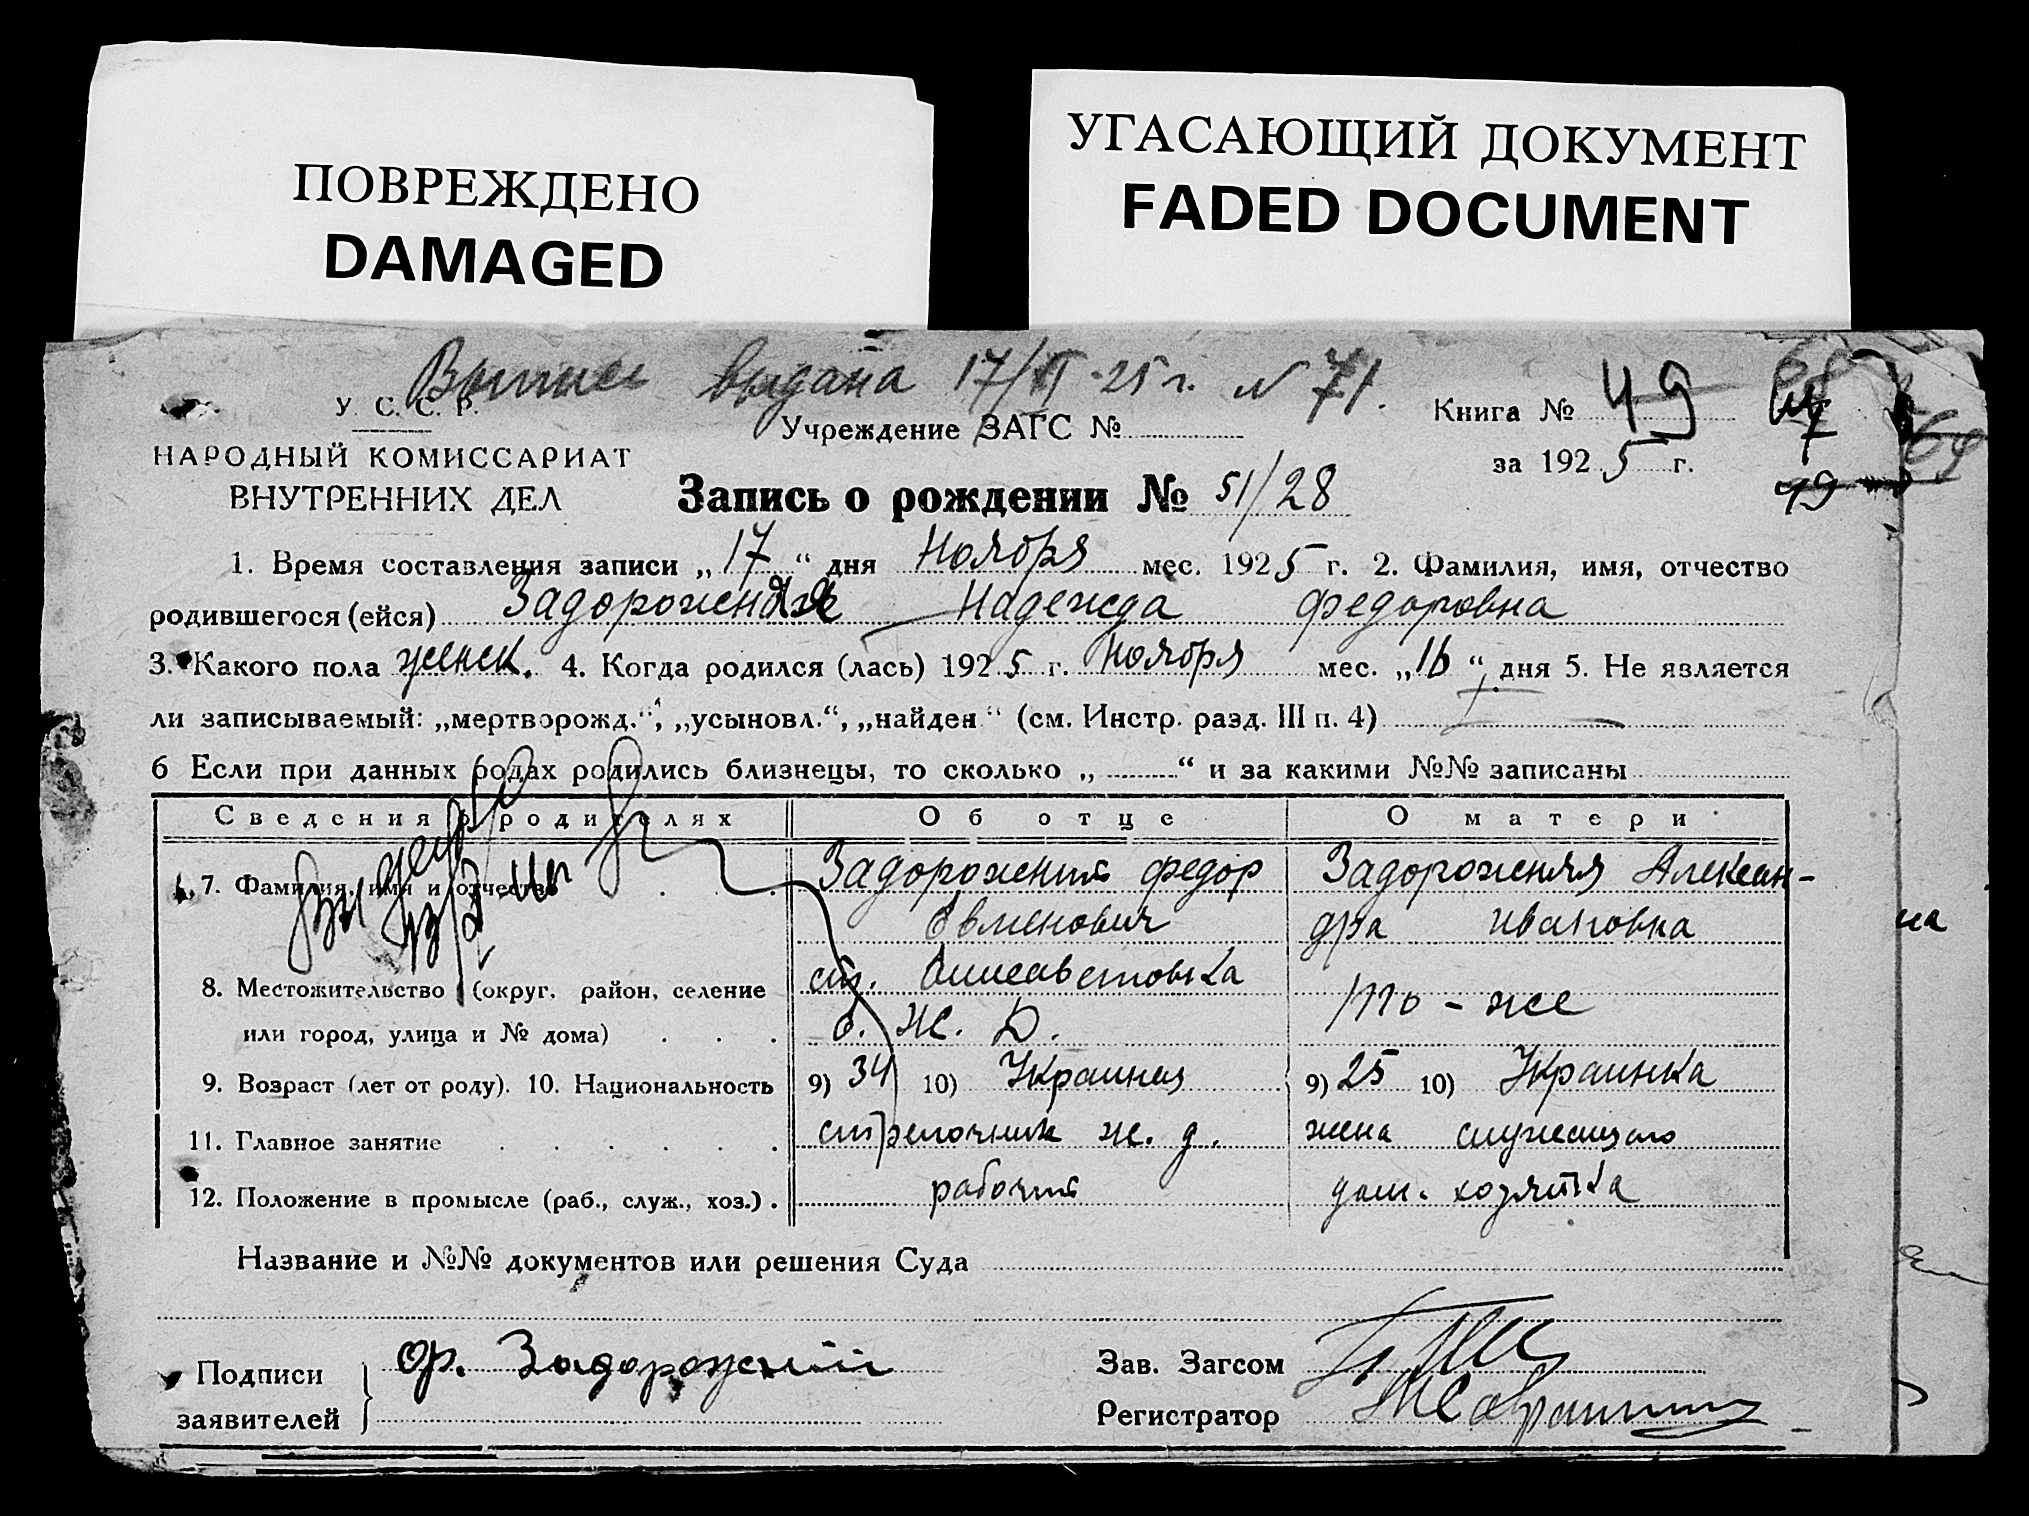 ПОВРЕЖДЕНО
DAMAGED
УГАСАЮЩИЙ ДОКУМЕНТ
FADED DOCUMENT
Выпись выдана 17/XI-25 г. N 71.
У. С. С. Р.
НАРОДНЫЙ КОМИССАРИАТ
ВНУТРЕННИХ ДЕЛ
Учреждение ЗАГС №
Книга № 49
за 1925 г.
19
64
Запись о рождении № 51/28
1. Время составления записи „17“ дня Ноября мес. 1925 г. 2. Фамилия, имя, отчество
родившегося (ейся) Задорожная Надежда Федоровна
3. Какого пола женск. 4. Когда родился (лась) 1925 г. Ноября мес. „16“ дня 5. Не является
ли записываемый: „мертворожд.“, „усыновл.“, „найден“ (см. Инстр. разд. III п. 4)
6 Если при данных родах родились близнецы, то сколько „ “ и за какими №№ записаны
Сведения о родителях Об отце О матери
7. Фамилия, имя и отчество Задорожний Федор Задорожняя Алексан-
Евменович дра Ивановна
8. Местожительство (округ, район, селение ст. Елисаветовка то-же
или город, улица и № дома) Е. Ж. Д.
9. Возраст (лет от роду). 10. Национальность 9) 34 10) Украинец 9) 25 10) Украинка
11. Главное занятие стрелочник ж. д. жена служащего
12. Положение в промысле (раб., служ., хоз.) рабочий дом. хозяйка
Название и №№ документов или решения Суда
Подписи
заявителей
Ф. Задорожний
Зав. Загсом
Регистратор
на